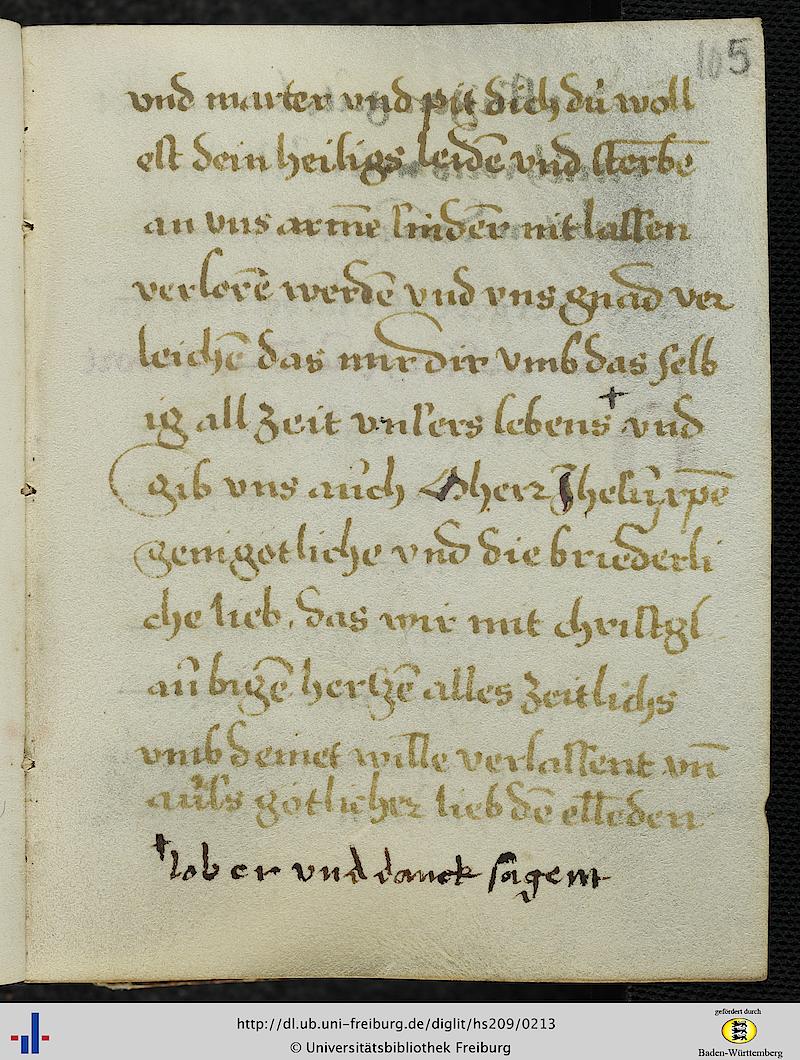 105
vnd marter vnd pit dich dů woll
est dein heiligs leidē vnd sterbē
an vns armē sindēr nit lassen
verlorē werdē vnd vns gnad ver
leichē das mir dir vmb das selb
ig all zeit vnsers lebens + vnd
gib vns aůch O herr Jhesů xpē
götliche vnd die briederli
che lieb, das wir mit christgl
aůbigē hertzē alles zeitlichs
vmb deinet wille verlassent vn̄
aůss götlicher lieb dē ellēden
+ lob er vnd danck sagent
http://dl.ub.uni-freiburg.de/diglit/hs209/0213
© Universitätsbibliothek Freiburg
gefördert durch
Baden-Württemberg